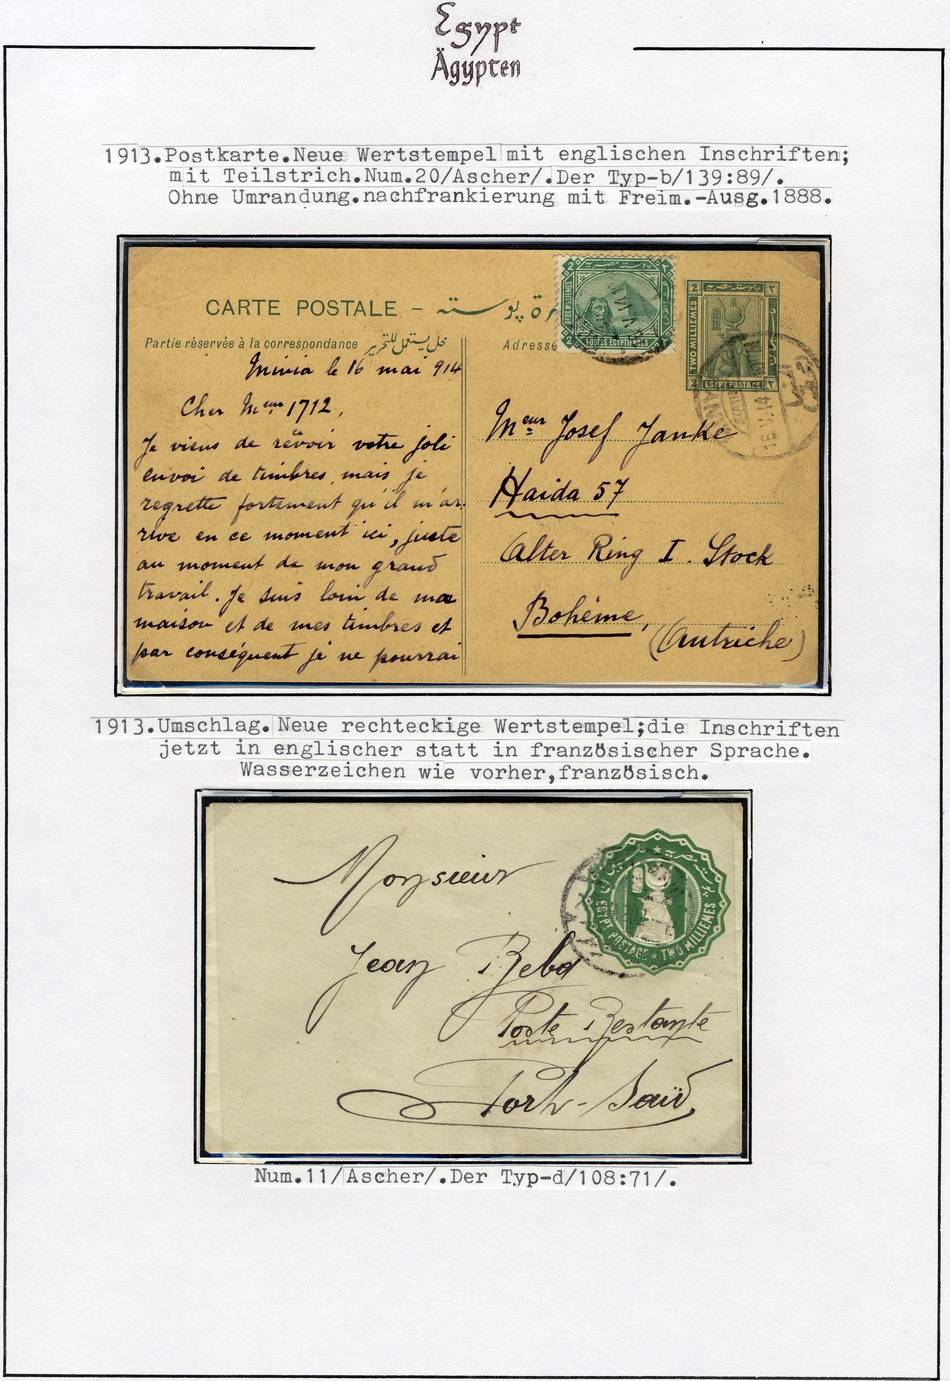 Egypt
Ägypten
1913.Postkarte.Neue Wertstempel mit englischen Inschriften;
mit Teilstrich.Num.20/Ascher/.Der Typ-b/139:89/.
Ohne Umrandung.nachfrankierung mit Freim.-Ausg.1888.
CARTE POSTALE -
Partie réservée à la correspondance
محل يستعمل للتحرير
Adresse
DEUX MILLIEMES
POSTES EGYPTIENNES
2
TWO MILLIEMES
EGYPT POSTAGE
16.V.14
Minia le 16 mai 914
Cher Meur 1712,
Je viens de rêvoir votre joli
envoi de timbres, mais je
regrette fortement qu'il m'ar-
rive en ce moment ici, juste
au moment de mon grand
travail. Je suis loin de ma
maison et de mes timbres et
par conséquent je ne pourrai
Meur Josef Janke
Haida 57
Alter Ring I. Stock
Bohême,
(Autriche)
1913.Umschlag. Neue rechteckige Wertstempel;die Inschriften
jetzt in englischer statt in französischer Sprache.
Wasserzeichen wie vorher,französisch.
Monsieur
Jean
Poste Restante
Port-Saïd
EGYPT POSTAGE * TWO MILLIEMES
Num.11/Ascher/.Der Typ-d/108:71/.